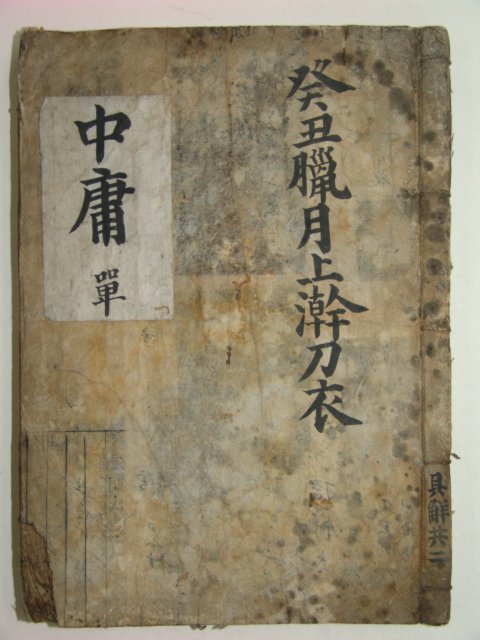 癸丑臘月上澣刀衣
中庸 單
具解共二